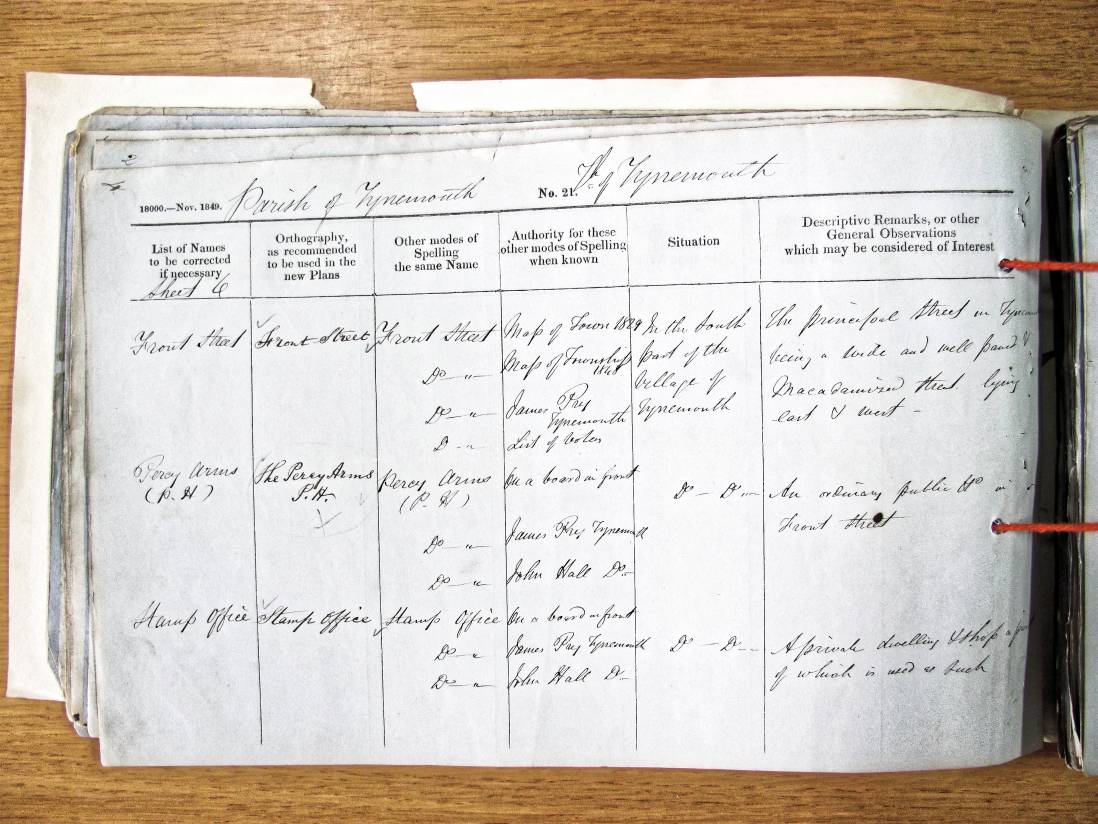 18000.—Nov. 1849. Parish of Tynemouth No. 21. Tp. of Tynemouth
List of Names to be corrected if necessary
Orthography, as recommended to be used in the new Plans
Other modes of Spelling the same Name
Authority for these other modes of Spelling when known
Situation
Descriptive Remarks, or other General Observations which may be considered of Interest
Sheet 6
Front Street
Front Street
Front Street
Do "
Do "
D "
Map of Town 1829
Map of Township 1846
James Pry Tynemouth
List of Voters
In the South
part of the
Village of
Tynemouth
The principal Street in
being a wide and well paved &
Macadamized Street lying
east & west –
Percy Arms
(P. H)
The Percy Arms
P.H.
Percy Arms
(P. H)
Do "
Do "
On a board in front
James Pry Tynemouth
John Hall Do
Do – Do
An ordinary public Ho in
Front Street
Stamp Office
Stamp Office
Stamp Office
Do "
Do "
On a board in front
James Pry Tynemouth
John Hall D
Do – D
A private dwelling & shop a
of which is used as such